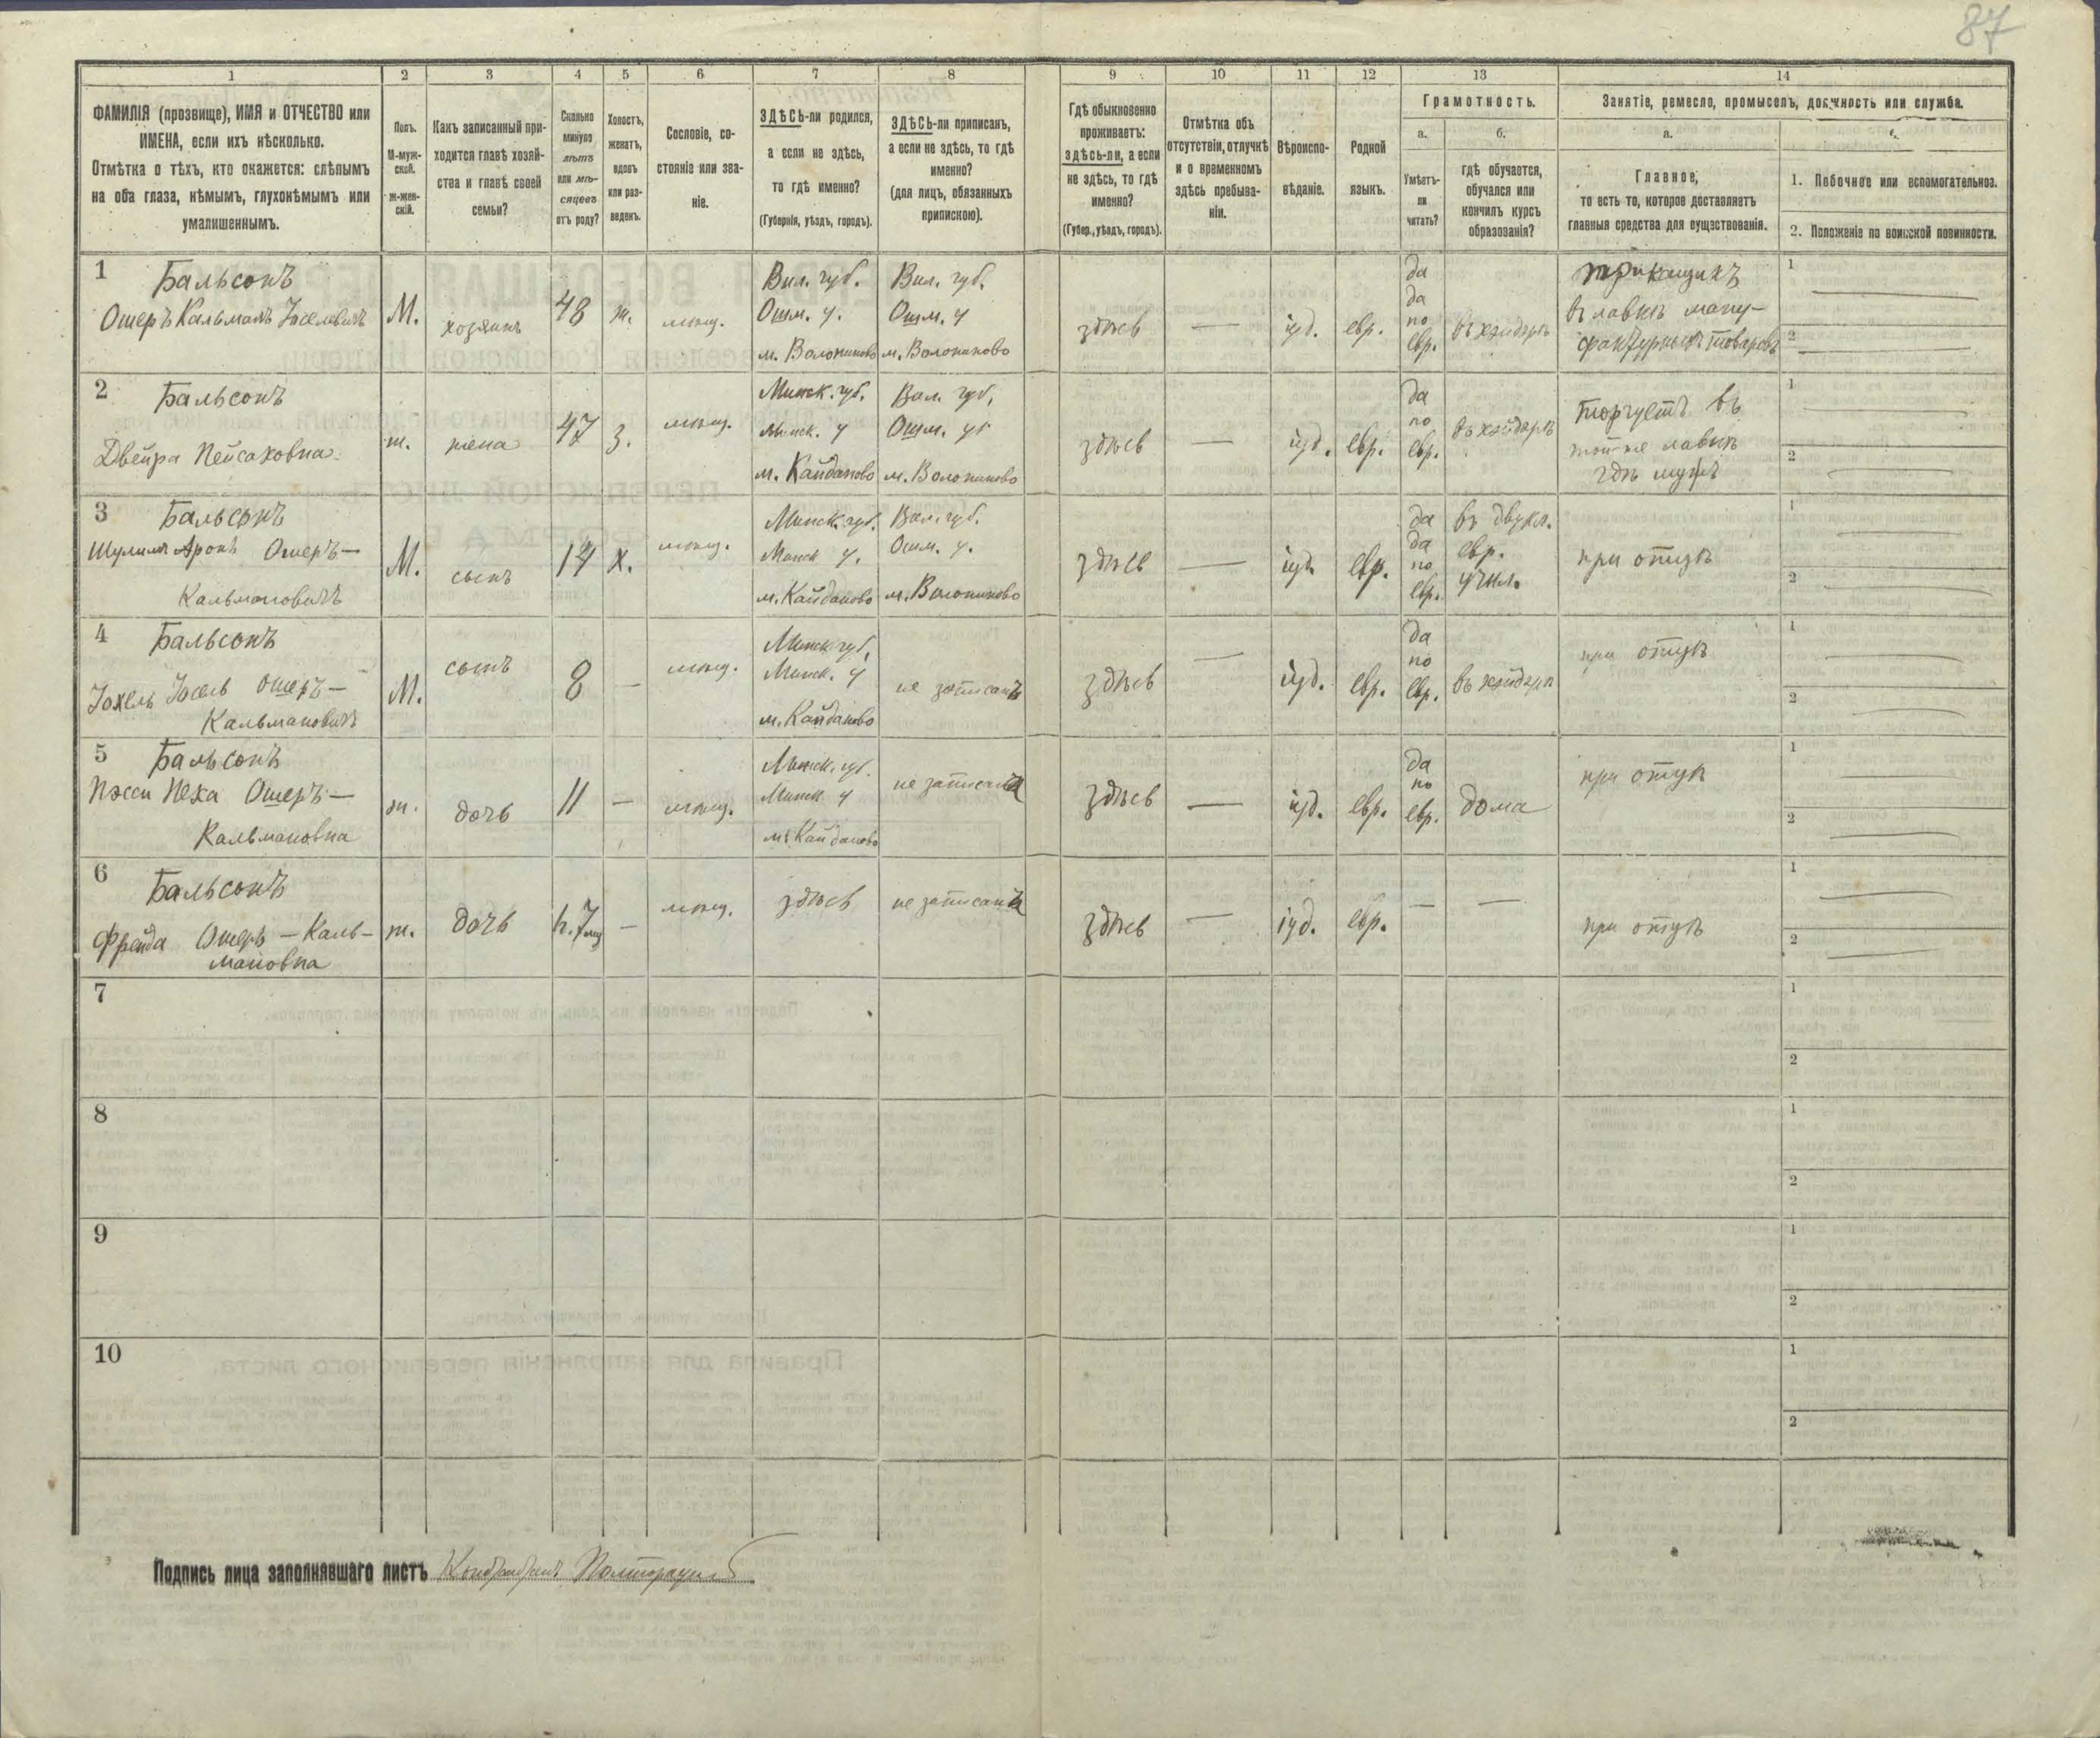 87
1 2 3 4 5 6 7 8 9 10 11 12 13 14
ФАМИЛІЯ (прозвище), ИМЯ и ОТЧЕСТВО или
ИМЕНА, если ихъ нѣсколько.
Отмѣтка о тѣхъ, кто окажется: слѣпымъ
на оба глаза, нѣмымъ, глухонѣмымъ или
умалишеннымъ.
Полъ.
М-муж-
ской.
Ж-жен-
скій.
Какъ записанный при-
ходится главѣ хозяй-
ства и главѣ своей
семьи?
Сколько
минуло
лѣтъ
или мѣ-
сяцевъ
отъ роду?
Холостъ,
женатъ,
вдовъ
или раз-
веденъ.
Сословіе, со-
стояніе или зва-
ніе.
ЗДѢСЬ-ли родился,
а если не здѣсь,
то гдѣ именно?
(Губернія, уѣздъ, городъ).
ЗДѢСЬ-ли приписанъ,
а если не здѣсь, то гдѣ
именно?
(для лицъ, обязанныхъ
припискою).
Гдѣ обыкновенно
проживаетъ:
здѣсь-ли, а если
не здѣсь, то гдѣ
именно?
(Губер., уѣздъ, городъ).
Отмѣтка объ
отсутствіи, отлучкѣ
и о временномъ
здѣсь пребыва-
ніи.
Вѣроиспо-
вѣданіе.
Родной
языкъ.
Грамотность.
а.
Умѣетъ-
ли
читать?
б.
гдѣ обучается,
обучался или
кончилъ курсъ
образованія?
Занятіе, ремесло, промыселъ, должность или служба.
а.
Главное,
то есть то, которое доставляетъ
главныя средства для существованія.
1. Побочное или вспомогательное.
2. Положеніе по воинской повинности.
1
Бальсонъ
Ошеръ Кальманъ Іоселевичъ
М.
хозяинъ
48
ж.
мѣщ.
Вил. губ.
Ошм. у.
м. Воложиново
Вил. губ.
Ошм. у
м. Воложиново
здѣсь
—
іуд.
евр.
да
да
по
евр.
въ хэйдерѣ
прикащикъ
въ лавкѣ ману-
фактурныхъ товаровъ
1
2
2
Бальсонъ
Двейра Пейсаховна
ж.
жена
47
з.
мѣщ.
Минск. губ.
Минск. у
м. Кайданово
Вил. губ.
Ошм. у
м. Воложиново
здѣсь
—
іуд.
евр.
да
по
евр.
въ хэйдерѣ
торгуетъ въ
той-же лавкѣ
гдѣ мужъ
1
2
3
Бальсонъ
Шулимъ Аронъ Ошеръ—
Кальмановичъ
М.
сынъ
14
х.
мѣщ.
Минск. губ.
Минск у.
м. Кайданово
Вил. губ.
Ошм. у.
м. Воложиново
здѣсь
—
іуд.
евр.
да
да
по
евр.
въ двукл.
евр.
учил.
при отцѣ
1
2
4
Бальсонъ
Іохель Іосель Ошеръ—
Кальмановичъ
М.
сынъ
8
—
мѣщ.
Минск губ,
Минск. у
м. Кайданово
не записанъ
здѣсь
—
іуд.
евр.
да
по
евр.
въ хэйдерѣ
при отцѣ
1
2
5
Бальсонъ
Пэсси Неха Ошеръ—
Кальмановна
ж.
дочь
11
—
мѣщ.
Минск. губ.
Минск у
м. Кайданово
не записана
здѣсь
—
іуд.
евр.
да
по
евр.
дома
при отцѣ
1
2
6
Бальсонъ
Фрейда Ошеръ—Каль-
мановна
ж.
дочь
—
мѣщ.
здѣсь
не записана
здѣсь
—
іуд.
евр.
—
—
при отцѣ
1
2
7
1
2
8
1
2
9
1
2
10
1
2
Подпись лица заполнявшаго листъ